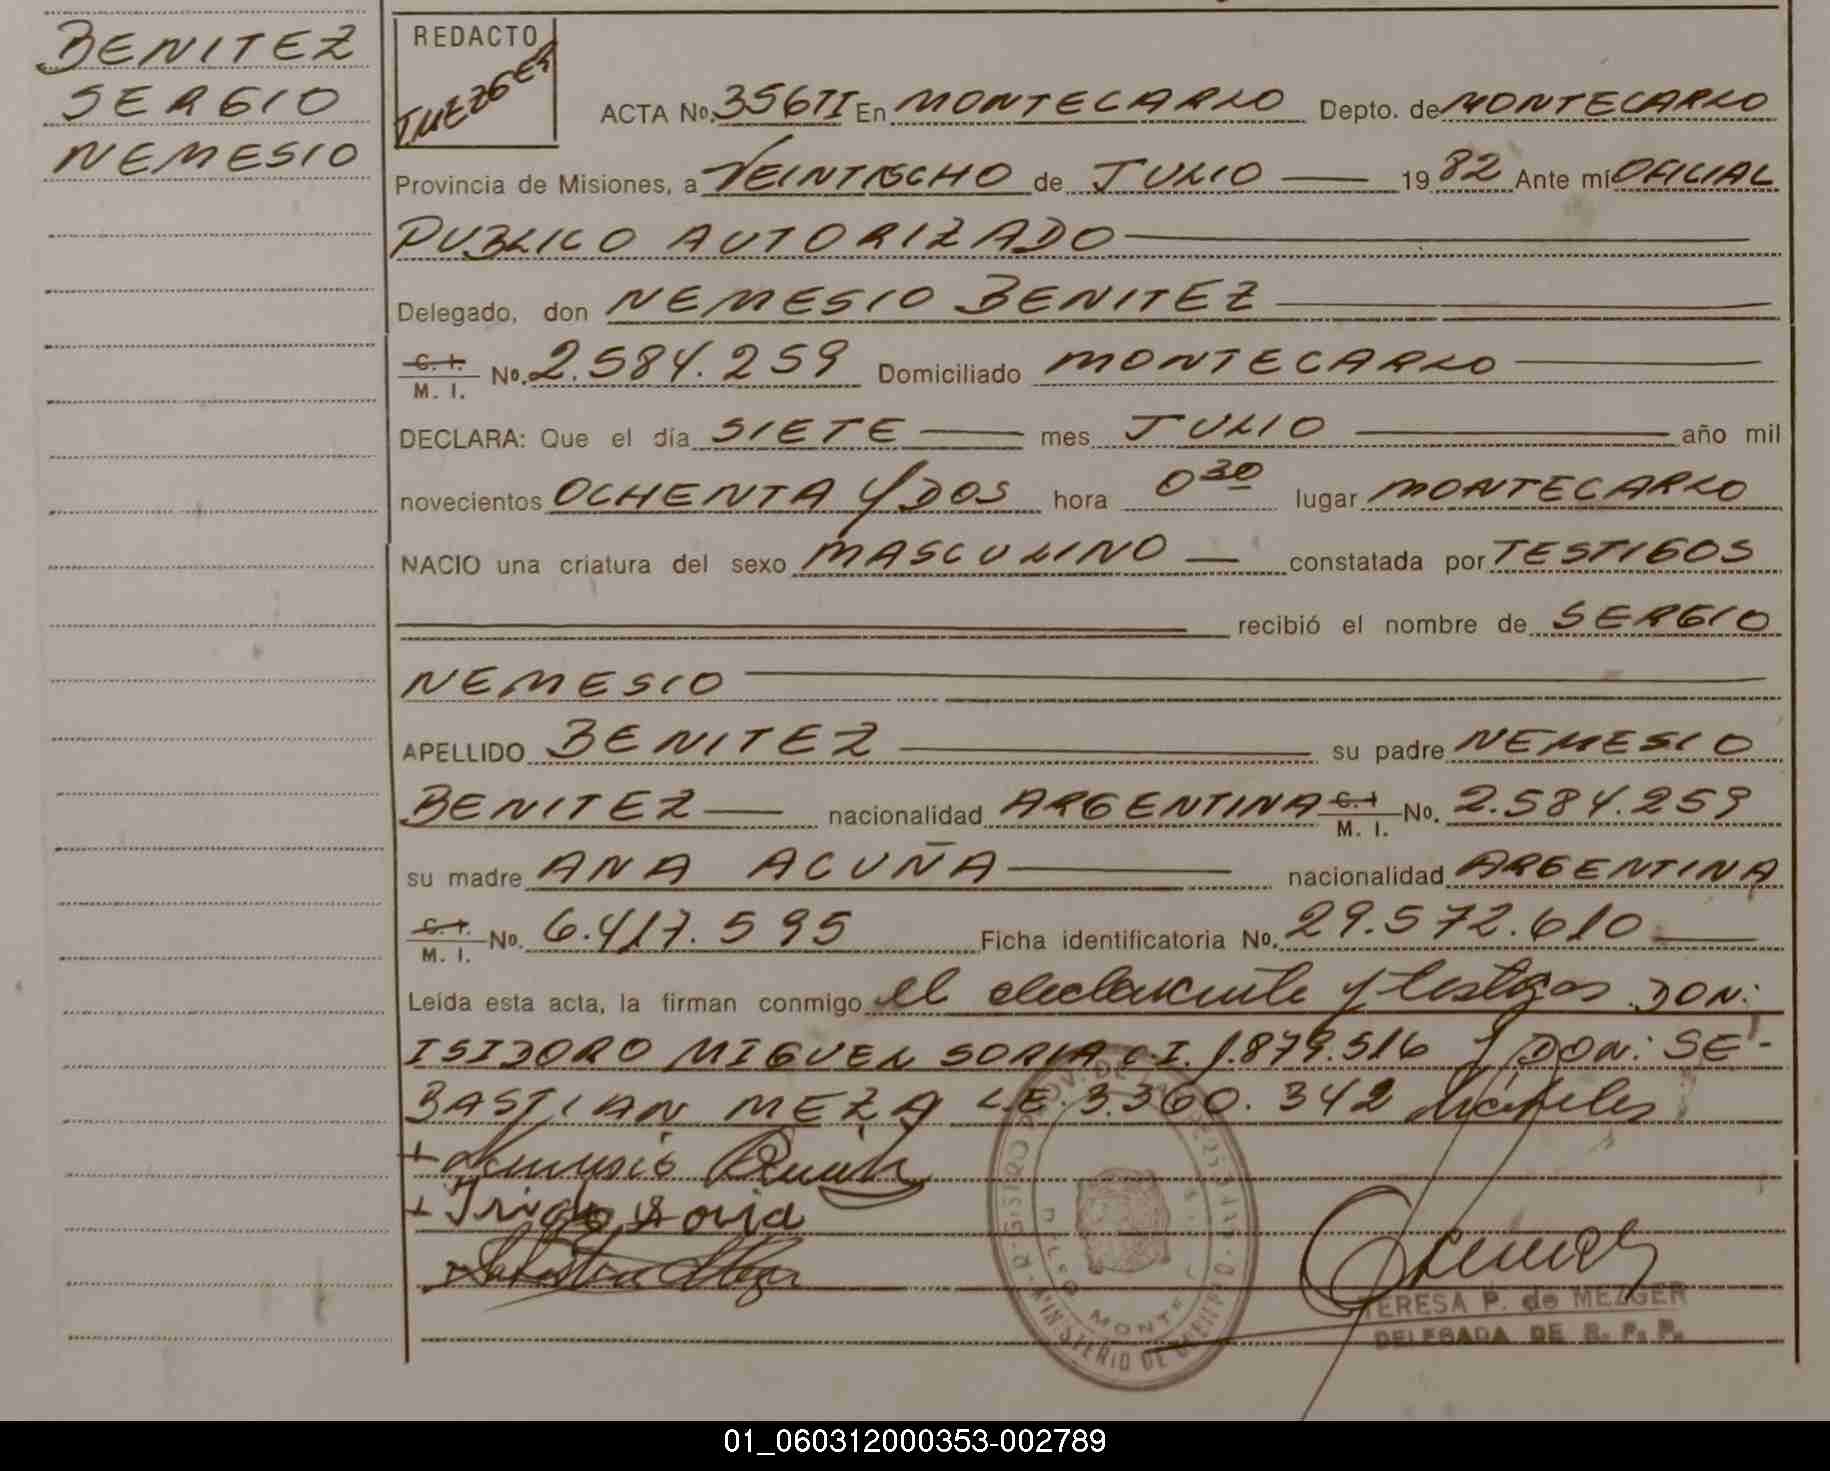 BENITEZ
SERGIO
NEMESIO
REDACTO
TMEZGER
ACTA No. 356TI En MONTECARLO Depto. de MONTECARLO
Provincia de Misiones, a VEINTIOCHO de JULIO — 19 82 Ante mí OFICIAL
PUBLICO AUTORIZADO —
Delegado, don NEMESIO BENITEZ —
C. I.
M. I. No. 2.584.259 Domiciliado MONTECARLO —
DECLARA: Que el día SIETE — mes JULIO — año mil
novecientos OCHENTA Y DOS hora 0 30 lugar MONTECARLO
NACIO una criatura del sexo MASCULINO — constatada por TESTIGOS
— recibió el nombre de SERGIO
NEMESIO —
APELLIDO BENITEZ — su padre NEMESIO
BENITEZ — nacionalidad ARGENTINA C. I. M. I. No. 2.584.259
su madre ANA ACUÑA — nacionalidad ARGENTINA
C. I.
M. I. No. 6.417.595 Ficha identificatoria No. 29.572.610 —
Leída esta acta, la firman conmigo el declarante y testigos DON:
ISIDORO MIGUEL SORIA C.I. 1.879.516 y DON: SE-
BASTIAN MEZA L.E. 3.360.342 hábiles
+ Nemesio Benitez
+ Isidoro Soria
Sebastian Meza
MINISTERIO DE GOBIERNO
TERESA P. de MEZGER
DELEGADA DE R. P. P.
01_060312000353-002789